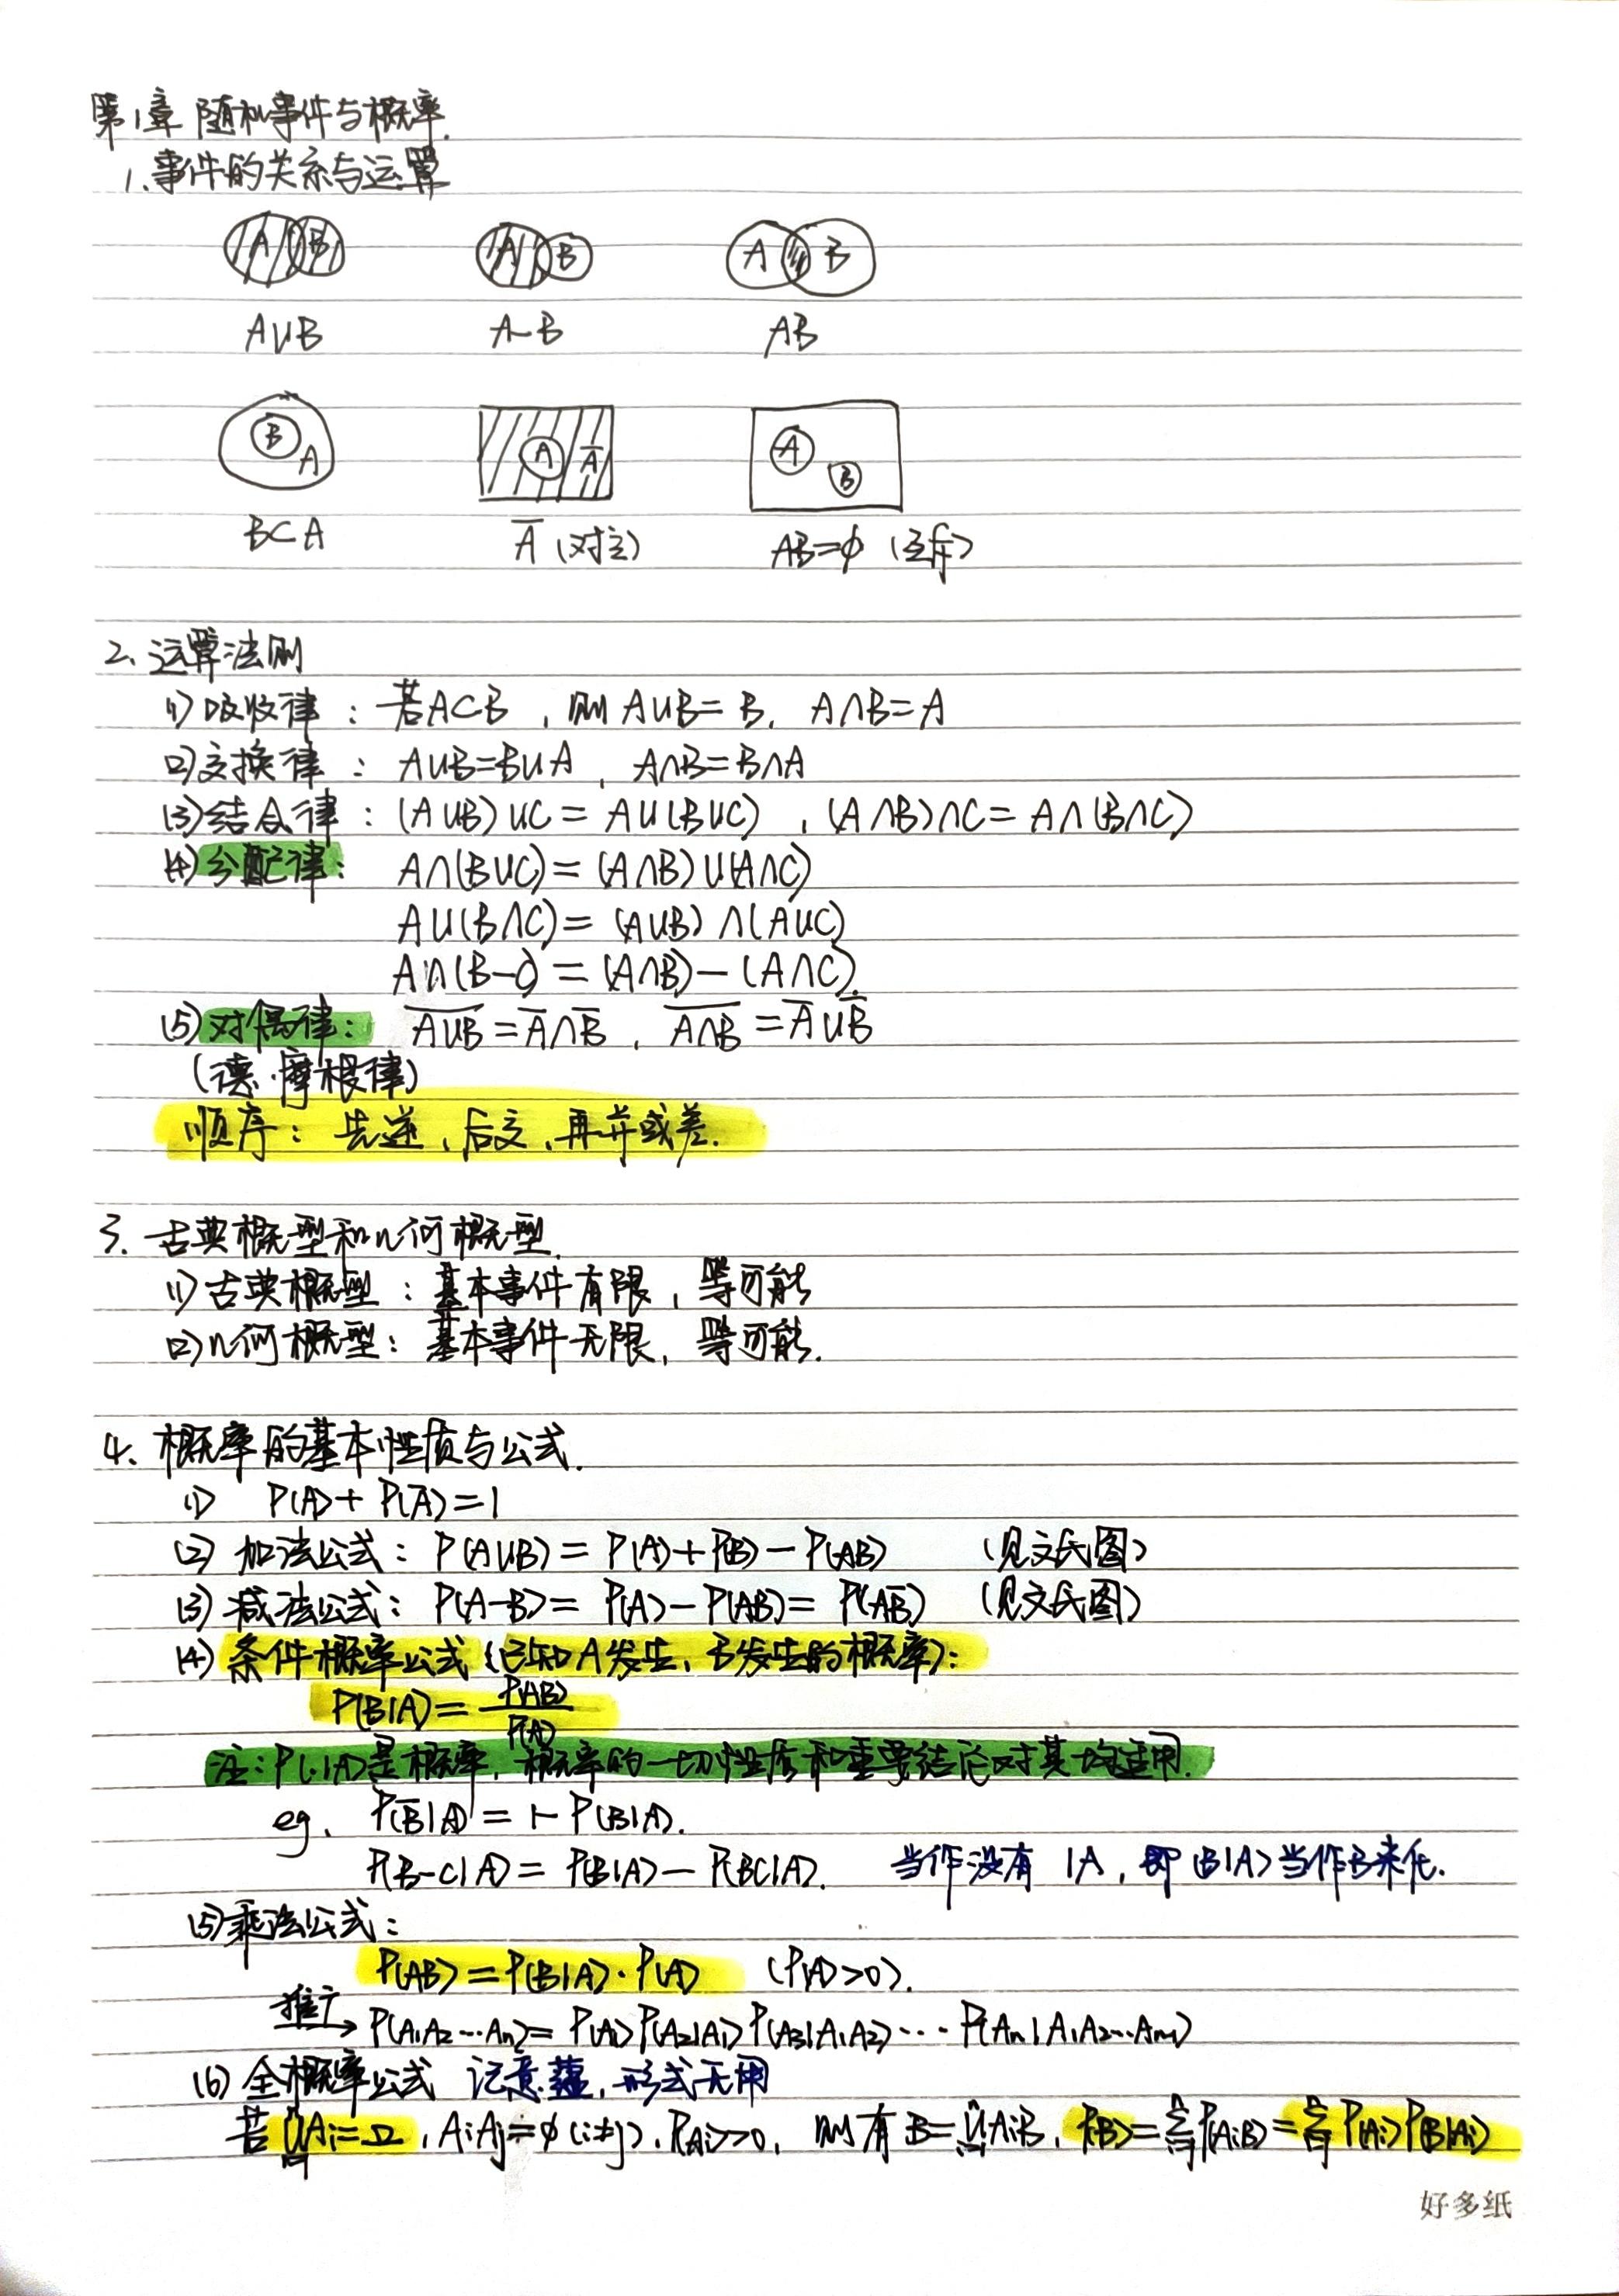 第1章 随机事件与概率.
1、事件的关系与运算
A B A B A B
A∪B A-B AB
B A A A̅ A B
B⊂A A̅(对立) AB=φ(互斥)
2、运算法则
(1)吸收律:若A⊂B,则A∪B=B, A∩B=A
(2)交换律:A∪B=B∪A,A∩B=B∩A
(3)结合律:(A∪B)∪C=A∪(B∪C),(A∩B)∩C=A∩(B∩C)
(4)分配律:A∩(B∪C)=(A∩B)∪(A∩C)
A∪(B∩C)=(A∪B)∩(A∪C)
A∩(B-C)=(A∩B)-(A∩C).
(5)对偶律:\overline{A∪B}=A̅∩B̅,\overline{A∩B}=A̅∪B̅
(德·摩根律)
顺序:先逆,后交,再并或差.
3、古典概型和几何概型.
(1)古典概型:基本事件有限,等可能
(2)几何概型:基本事件无限,等可能.
4、概率的基本性质与公式.
(1) P(A)+P(A̅)=1
(2) 加法公式:P(A∪B)=P(A)+P(B)-P(AB) (见文氏图)
(3) 减法公式:P(A-B)=P(A)-P(AB)=P(AB̅) (见文氏图)
(4) 条件概率公式(已知A发生,B发生的概率):
P(B|A)=\frac{P(AB)}{P(A)}
注:P(·|A)是概率,概率的一切性质和重要结论对其均适用.
eg. P(B̅|A)=1-P(B|A).
P(B-C|A)=P(B|A)-P(BC|A). 当作没有|A,即(B|A)当作B来化.
(5)乘法公式:
P(AB)=P(B|A)·P(A) (P(A)>0).
推广→P(A₁A₂⋯Aₙ)=P(A₁)P(A₂|A₁)P(A₃|A₁A₂)⋯P(Aₙ|A₁A₂⋯Aₙ₋₁)
(6)全概率公式 记意蕴,形式无用
若\bigcup_{i=1}^{n}Aᵢ=Ω,AᵢAⱼ=φ(i≠j),P(Aᵢ)>0,则有B=\bigcup_{i=1}^{n}AᵢB,P(B)=\sum_{i=1}^{n}P(AᵢB)=\sum_{i=1}^{n}P(Aᵢ)P(B|Aᵢ)
好多纸